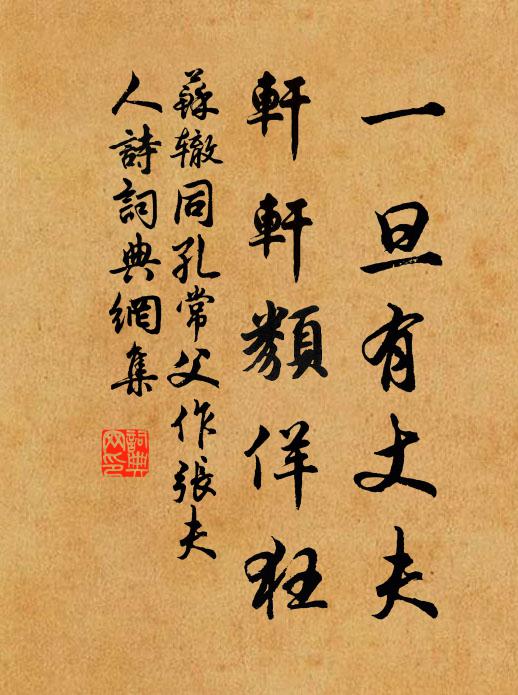 一旦有丈夫
軒軒類佯狂
蘇辙同孔常父作張夫
人詩詞典網集
詞典
网印